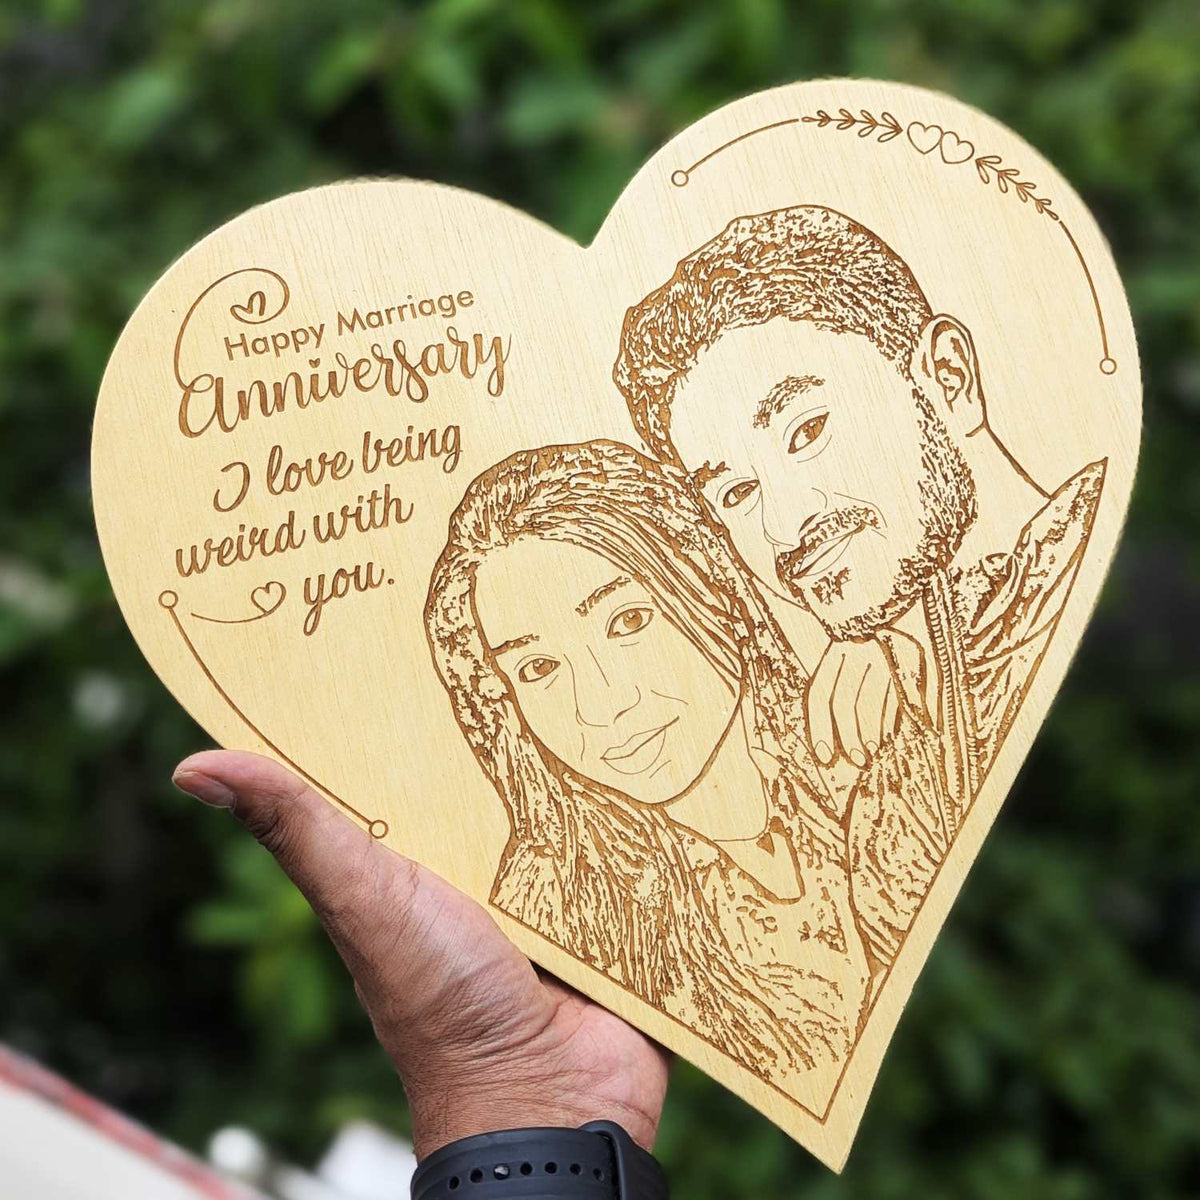 Happy Marriage
Anniversary
I love being
weird with
you.